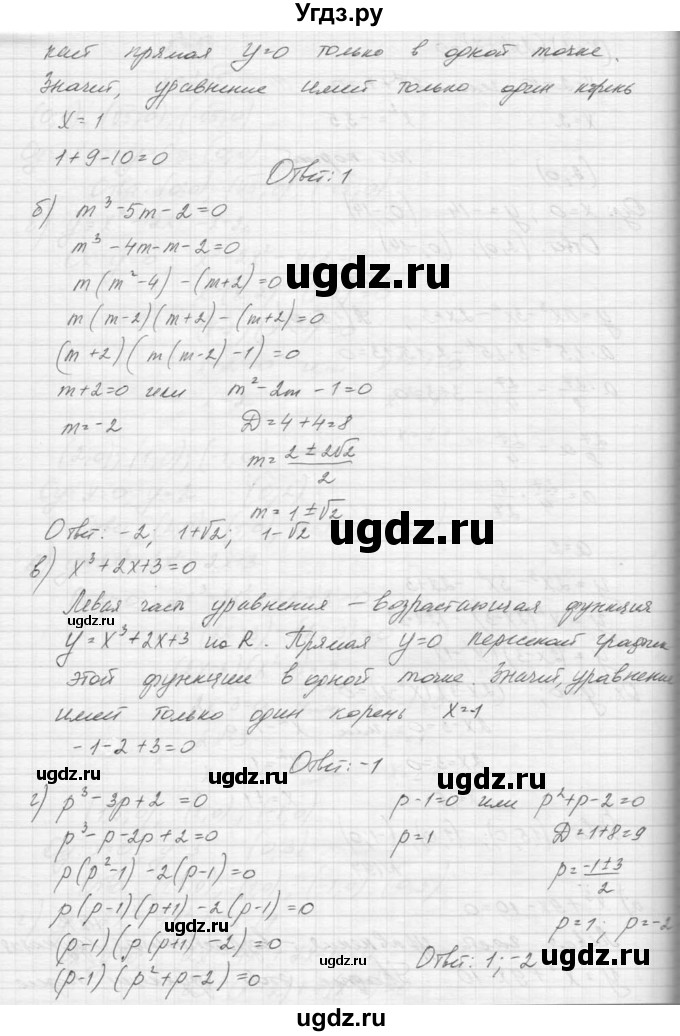 Угдз.ру
кает прямая y=0 только в одной точке.
Значит, уравнение имеет только один корень
x=1
1+9-10=0
Ответ: 1
б) m³-5m-2=0
m³-4m-m-2=0
m(m²-4)-(m+2)=0
ugdz.ru
m(m-2)(m+2)-(m+2)=0
(m+2)(m(m-2)-1)=0
m+2=0 или m²-2m-1=0
m=-2 D=4+4=8
ugdz.ru ugdz.ru
m=(2±2√2)/2
m=1±√2
Ответ: -2; 1+√2; 1-√2
ugdz.ru
в) x³+2x+3=0
Левая часть уравнения – возрастающая функция
ugdz.ru
y=x³+2x+3 на R. Прямая y=0 график
этой функции в одной точке. Значит, уравнение
имеет только один корень x=-1
-1-2+3=0
Ответ: -1
ugdz.ru ugdz.ru
г) p³-3p+2=0 p-1=0 или p²+p-2=0
p³-p-2p+2=0 p=1 D=1+8=9
p(p²-1)-2(p-1)=0 p=(-1±3)/2
p(p-1)(p+1)-2(p-1)=0
ugdz.ru
p=1; p=-2
(p-1)(p(p+1)-2)=0
Ответ: 1; -2
ugdz.ru
(p-1)(p²+p-2)=0